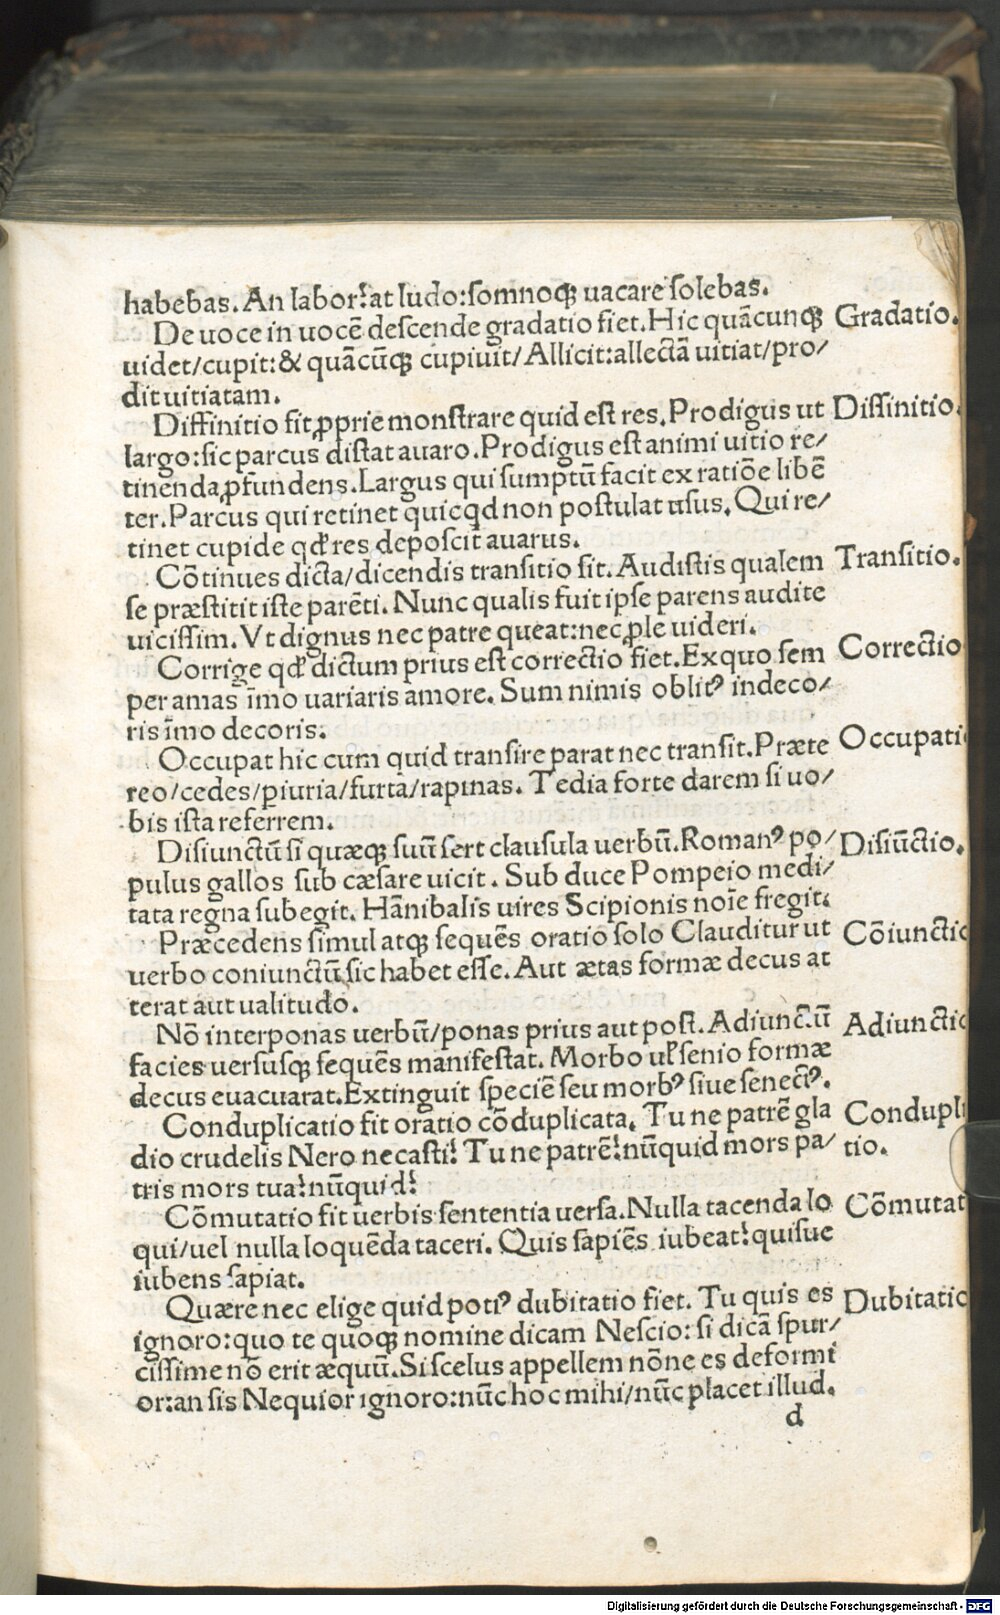 habebas. An labor?at ludo:somnoq; uacare solebas.
De uoce in uocē descende gradatio fiet. Hic quācunq; Gradatio.
uidet/cupit:& quācūq; cupiuit/Allicit:allectā uitiat/pro/
dit uitiatam.
Diffinitio fit ꝓprie monstrare quid est res. Prodigus ut Diffinitio.
largo:sic parcus distat auaro. Prodigus est animi uitio re/
tinenda ꝓfundens. Largus qui sumptū facit ex ratiōe libē
ter. Parcus qui retinet quicqd non postulat usus. Qui re/
tinet cupide qđ res deposcit auarus.
Cōtinues dicta/dicendis transitio fit. Audistis qualem Transitio.
se præstitit iste parēti. Nunc qualis fuit ipse parens audite
uicissim. Vt dignus nec patre queat:nec ꝓle uideri.
Corrige qđ dictum prius est correctio fiet. Ex quo sem Correctio
per amas īmo uariaris amore. Sum nimis oblitꝰ indeco/
ris īmo decoris:
Occupat hic cum quid transire parat nec transit. Præte Occupati
reo/cedes/ꝑiuria/furta/rapinas. Tedia forte darem si uo/
bis ista referrem.
Disiunctū si quæq; suū fert clausula uerbū. Romanꝰ po/ Disiūctio.
pulus gallos sub cæsare uicit. Sub duce Pompeio medi/
tata regna subegit. Hānibalis uires Scipionis noīe fregit:
Præcedens simul atq; sequēs oratio solo Clauditur ut Cōiunctio
uerbo coniunctū sic habet esse. Aut ætas formæ decus at
terat aut ualitudo.
Nō interponas uerbū/ponas prius aut post. Adiunctū Adiunctio
facies uersusq; sequēs manifestat. Morbo uł senio formæ
decus euacuarat. Extinguit speciē seu morbꝰ siue senectꝰ.
Conduplicatio fit oratio cōduplicata. Tu ne patrē gla Condupli
dio crudelis Nero necasti? Tu ne patrē?nūquid mors pa/ tio.
tris mors tua?nūquid?
Cōmutatio fit uerbis sententia uersa. Nulla tacenda lo Cōmutat
qui/uel nulla loquēda taceri. Quis sapiēs iubeat?quisue
iubens sapiat.
Quære nec elige quid potiꝰ dubitatio fiet. Tu quis es Dubitatio
ignoro:quo te quoq; nomine dicam Nescio:si dicā spur/
cissime nō erit æquū. Si scelus appellem nōne es deformi
or:an sis Nequior ignoro:nūc hoc mihi/nūc placet illud.
d
Digitalisierung gefördert durch die Deutsche Forschungsgemeinschaft - DFG